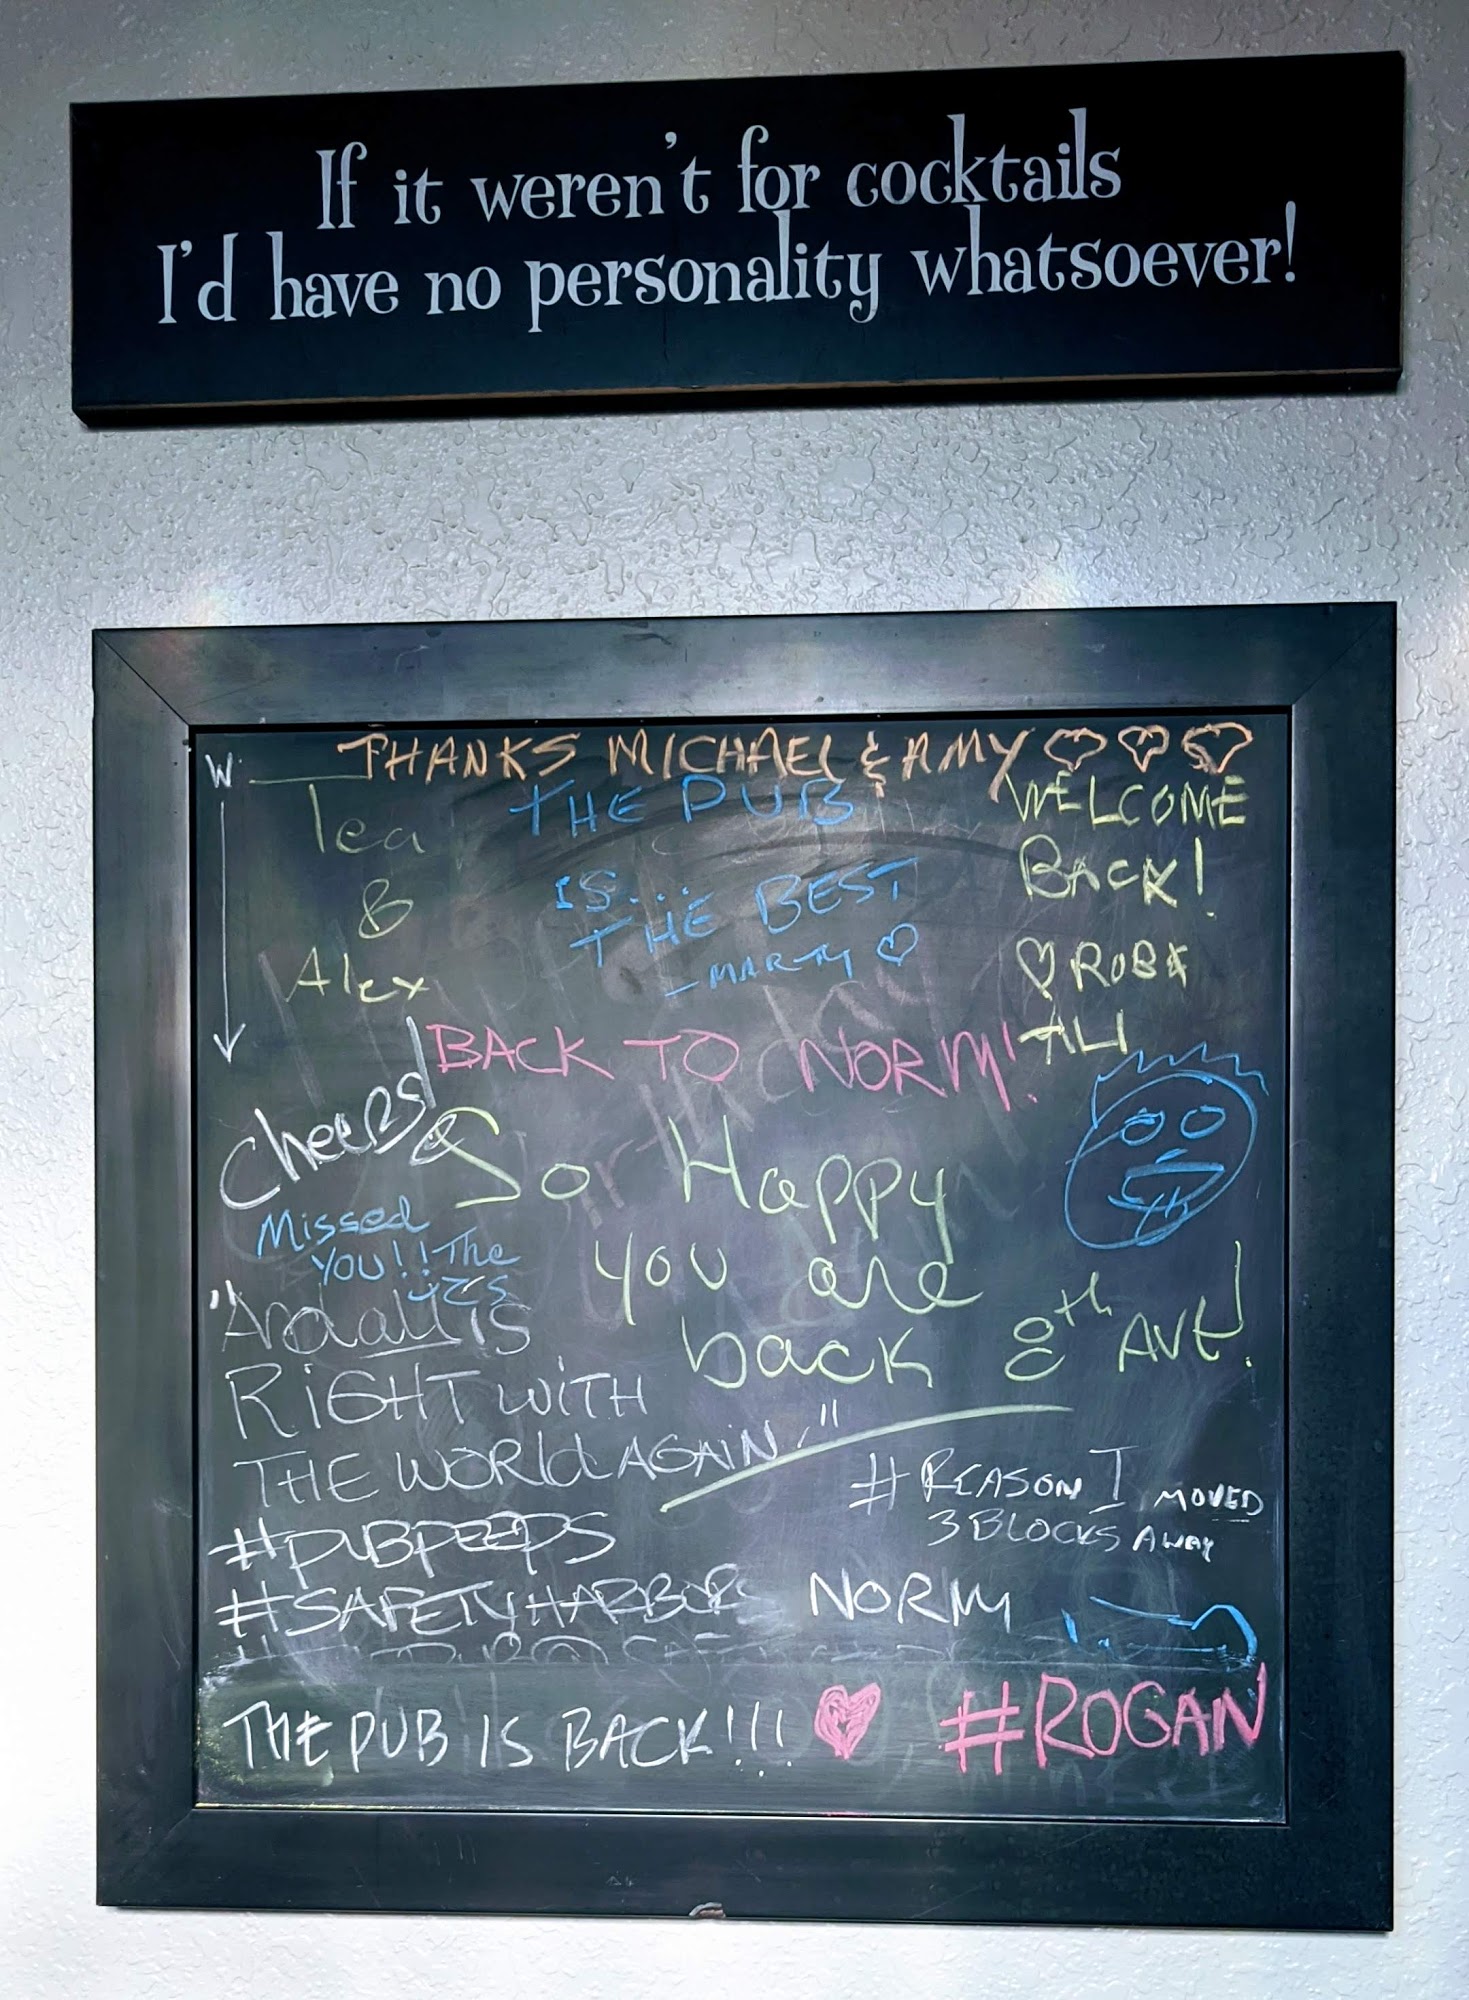 If it weren't for cocktails
I'd have no personality whatsoever!
THANKS MICHAEL & AMY
W
Tea
&
Alex
THE PUB
IS...
THE BEST
- MARTY
WELCOME
BACK!
ROB &
ALI
BACK TO NORM!
Cheers!
So Happy
you are
back 8th AVE!
Missed
YOU!! The
"And all is
RIGHT WITH
THE WORLD AGAIN."
# REASON I MOVED
3 BLOCKS AWAY
#PUBPEEPS
#SAFETYHARBOR
NORM
THE PUB IS BACK!!!
#ROGAN